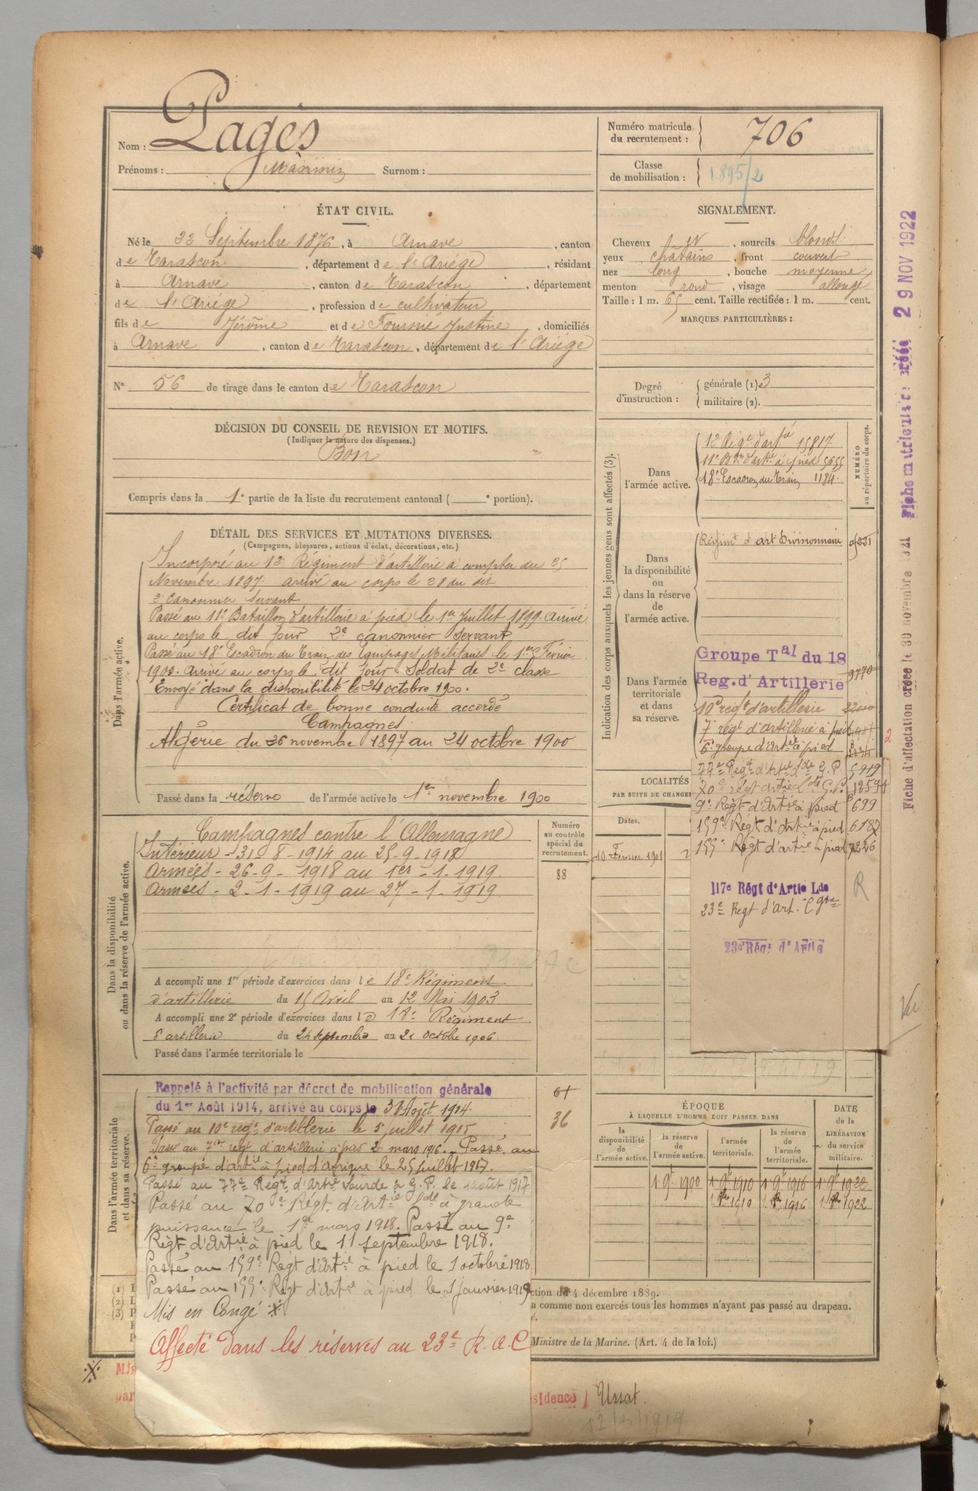 Nom : Pagès
Prénoms : Maximin Surnom :
Numéro matricule du recrutement : 706
Classe de mobilisation : 1895/2
ÉTAT CIVIL.
Né le 22 Septembre 1876, à Arnave, canton
de Tarascon, département de l'Ariège, résidant
à Arnave, canton de Tarascon, département
de l'Ariège, profession de cultivateur
fils de Jérôme et de Fournié Justine, domiciliés
à Arnave, canton de Tarascon, département de l'Ariège
N° 56 de tirage dans le canton de Tarascon
SIGNALEMENT.
Cheveux et, sourcils blonds
yeux châtains, front couvert
nez long, bouche moyenne
menton rond, visage allongé
Taille : 1 m. 65 cent. Taille rectifiée : 1 m. cent.
MARQUES PARTICULIÈRES :
Degré d'instruction : générale (1) 3
militaire (2).
DÉCISION DU CONSEIL DE REVISION ET MOTIFS.
(Indiquer la nature des dispenses.)
Bon
Compris dans la 1e partie de la liste du recrutement cantonal ( e portion).
DÉTAIL DES SERVICES ET MUTATIONS DIVERSES.
(Campagnes, blessures, actions d'éclat, décorations, etc.)
Dans l'armée active.
Incorporé au 12e Régiment d'artillerie à compter du 25
Novembre 1897 arrivé au corps le 28 du dit
2e Canonnier servant
Passé au 11e Bataillon d'artillerie à pied le 1er Juillet 1899 arrivé
au corps le dit jour 2e canonnier Servant
Passé au 18e Escadron du Train des Equipages Militaires le 1er Février
1900. Arrivé au corps le dit jour Soldat de 2e classe
Envoyé dans la disponibilité le 24 octobre 1900.
Certificat de bonne conduite accordé
Campagnes
Algérie du 26 novembre 1897 au 24 octobre 1900
Passé dans la réserve de l'armée active le 1er novembre 1900
Dans la disponibilité ou dans la réserve de l'armée active.
Campagnes contre l'Allemagne
Intérieur - 31-8-1914 au 25-9-1918
Armées - 26-9-1918 au 1er-1-1919
Armées - 2-1-1919 au 27-1-1919
A accompli une 1re période d'exercices dans le 18e Régiment
d'artillerie du 15 Avril au 12 Mai 1903
A accompli une 2e période d'exercices dans le 18e Régiment
d'artillerie du 24 septembre au 21 octobre 1906
Passé dans l'armée territoriale le
Numéro au contrôle spécial du recrutement.
88
Dans l'armée territoriale et dans sa réserve.
Rappelé à l'activité par décret de mobilisation générale
du 1er Août 1914, arrivé au corps le 31 Août 1914
Passé au 10e rég. d'artillerie le 5 juillet 1915
Passé au 7e rég. d'artillerie à pied 2 mars 1916. Passé au
6e groupe d'artie à pied d'afrique le 25 juillet 1917.
Passé au 77e Régt d'Artie Lourde à G.P. le août 1917
Passé au 70e Régt. d'Artie à grande
puissance le 1er mars 1918. Passé au 9e
Régt d'Artie à pied le 11 septembre 1918.
Passé au 159e Régt d'Artie à pied le 1 octobre 1918
Passé au 155e Régt d'Artie à pied le 2 janvier 1919
Mis en Congé *
Affecté dans les réserves au 23e R.A.C
36
Indication des corps auxquels les jeunes gens sont affectés (3).
NUMÉRO au répertoire du corps.
Dans l'armée active.
12e Régt d'arté 15817
11e Bon d'artie à pied 5655
18e Escadron du Train 1184
Dans la disponibilité ou dans la réserve de l'armée active.
Régiment d'art Divisionnaire
Dans l'armée territoriale et dans sa réserve.
Groupe Tal du 18
Reg. d'Artillerie
10e régt d'artillerie
7e régt d'artillerie à pied
6e groupe d'artie à pied
77e Régt d'Artie Lde G.P
70e régt artie Lde G.P.
9e Régt d'Artie à pied 699
159e Régt d'Artie à pied
155e Régt d'Artie à pied
117e Régt d'Artie Lde
23e Régt d'Art. Cgne
23e Rég. d'Artie
R
LOCALITÉS
PAR SUITE DE CHANGE
Dates.
10 Février 1901
ÉPOQUE
À LAQUELLE L'HOMME DOIT PASSER DANS
DATE de la LIBÉRATION du service militaire.
la disponibilité de l'armée active.
la réserve de l'armée active.
l'armée territoriale.
la réserve de l'armée territoriale.
1 9e 1900 1 9e 1910 1 9e 1916 1 9e 1922
1919 1916 1922
ction du 4 décembre 1889.
a comme non exercés tous les hommes n'ayant pas passé au drapeau.
Ministre de la Marine. (Art. 4 de la loi.)
sidence Ussat
Fiche matricule créée 29 NOV 1922
Fiche d'affectation créée le 30 novembre
Vu